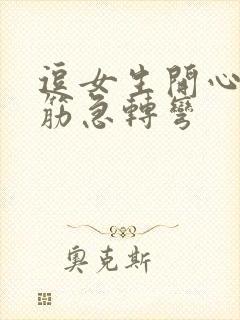 逗女生開心
筋急轉彎
奧克斯